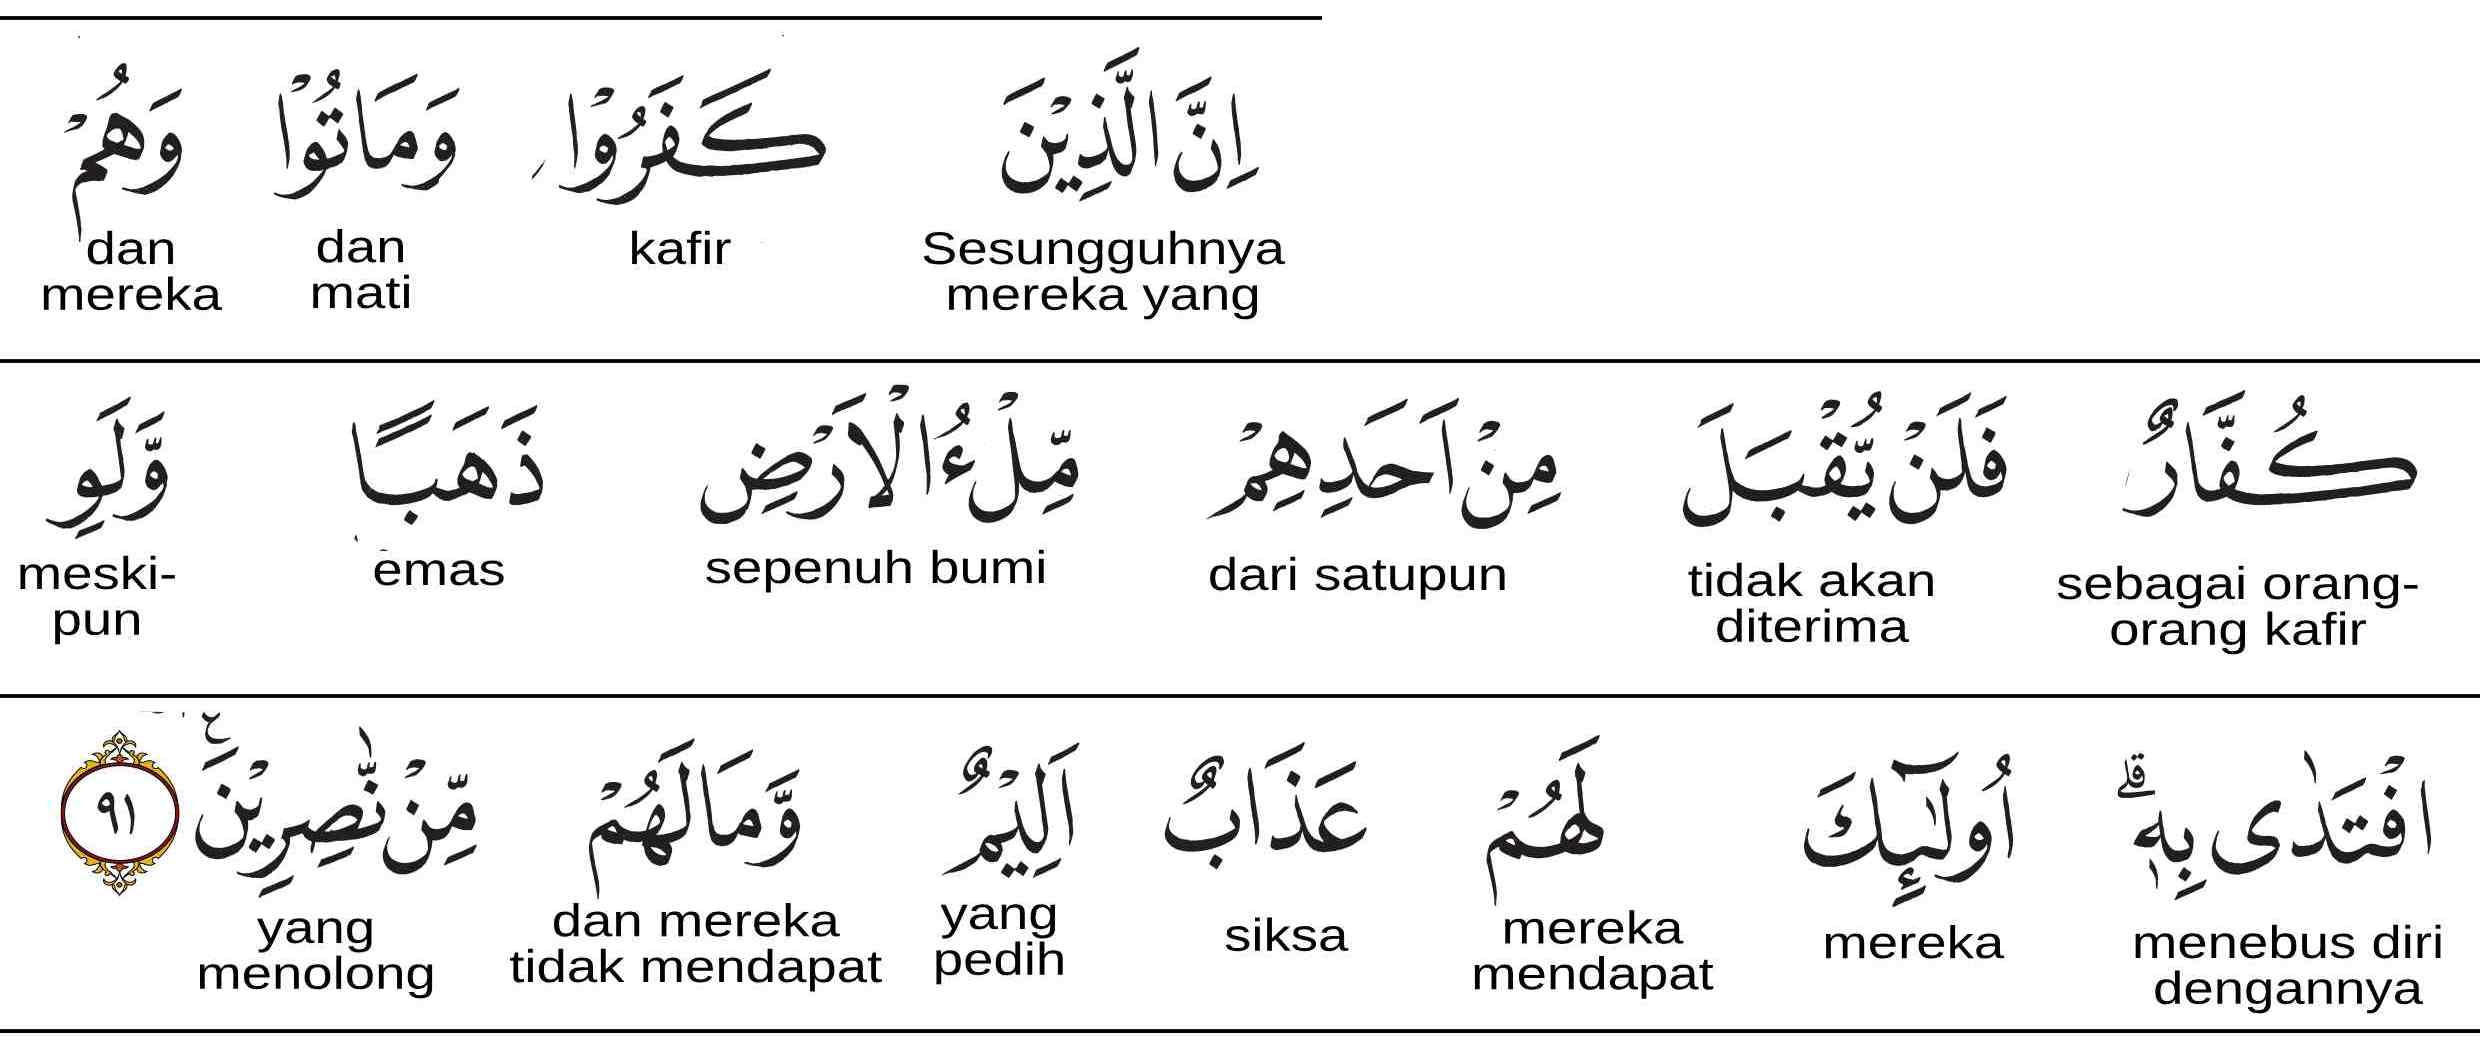 اِنَّ الَّذِيْنَ كَفَرُوْا وَمَاتُوْا وَهُمْ
Sesungguhnya mereka yang kafir dan mati dan mereka
كُفَّارٌ فَلَنْ يُّقْبَلَ مِنْ اَحَدِهِمْ مِّلْءُ الْاَرْضِ ذَهَبًا وَّلَوِ
sebagai orang-orang kafir tidak akan diterima dari satupun sepenuh bumi emas meski-pun
افْتَدٰى بِهٖۗ اُولٰۤىِٕكَ لَهُمْ عَذَابٌ اَلِيْمٌ وَّمَا لَهُمْ مِّنْ نّٰصِرِيْنَ ࣖ ٩١
menebus diri dengannya mereka mereka mendapat siksa yang pedih dan mereka tidak mendapat yang menolong